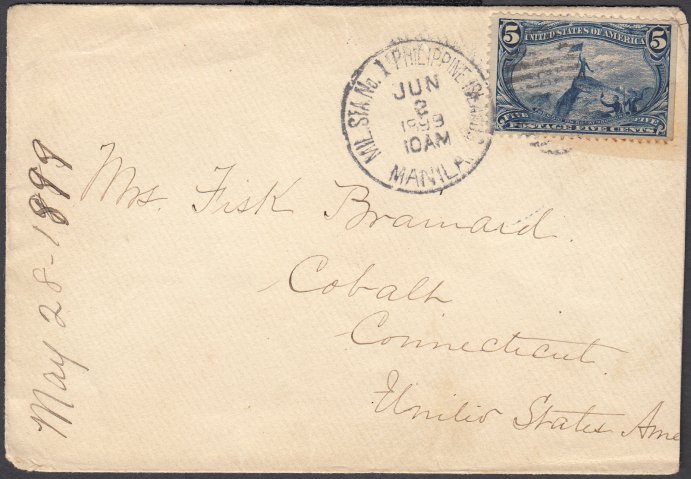 MIL. STA. No. 1 PHILIPPINE ISLANDS
JUN
2
1899
10AM
MANILA
5 UNITED STATES OF AMERICA 5
FIVE FIVE
POSTAGE FIVE CENTS
May 28-1899
Mrs. Fisk Brainard.
Cobalt
Connecticut.
United States Ame